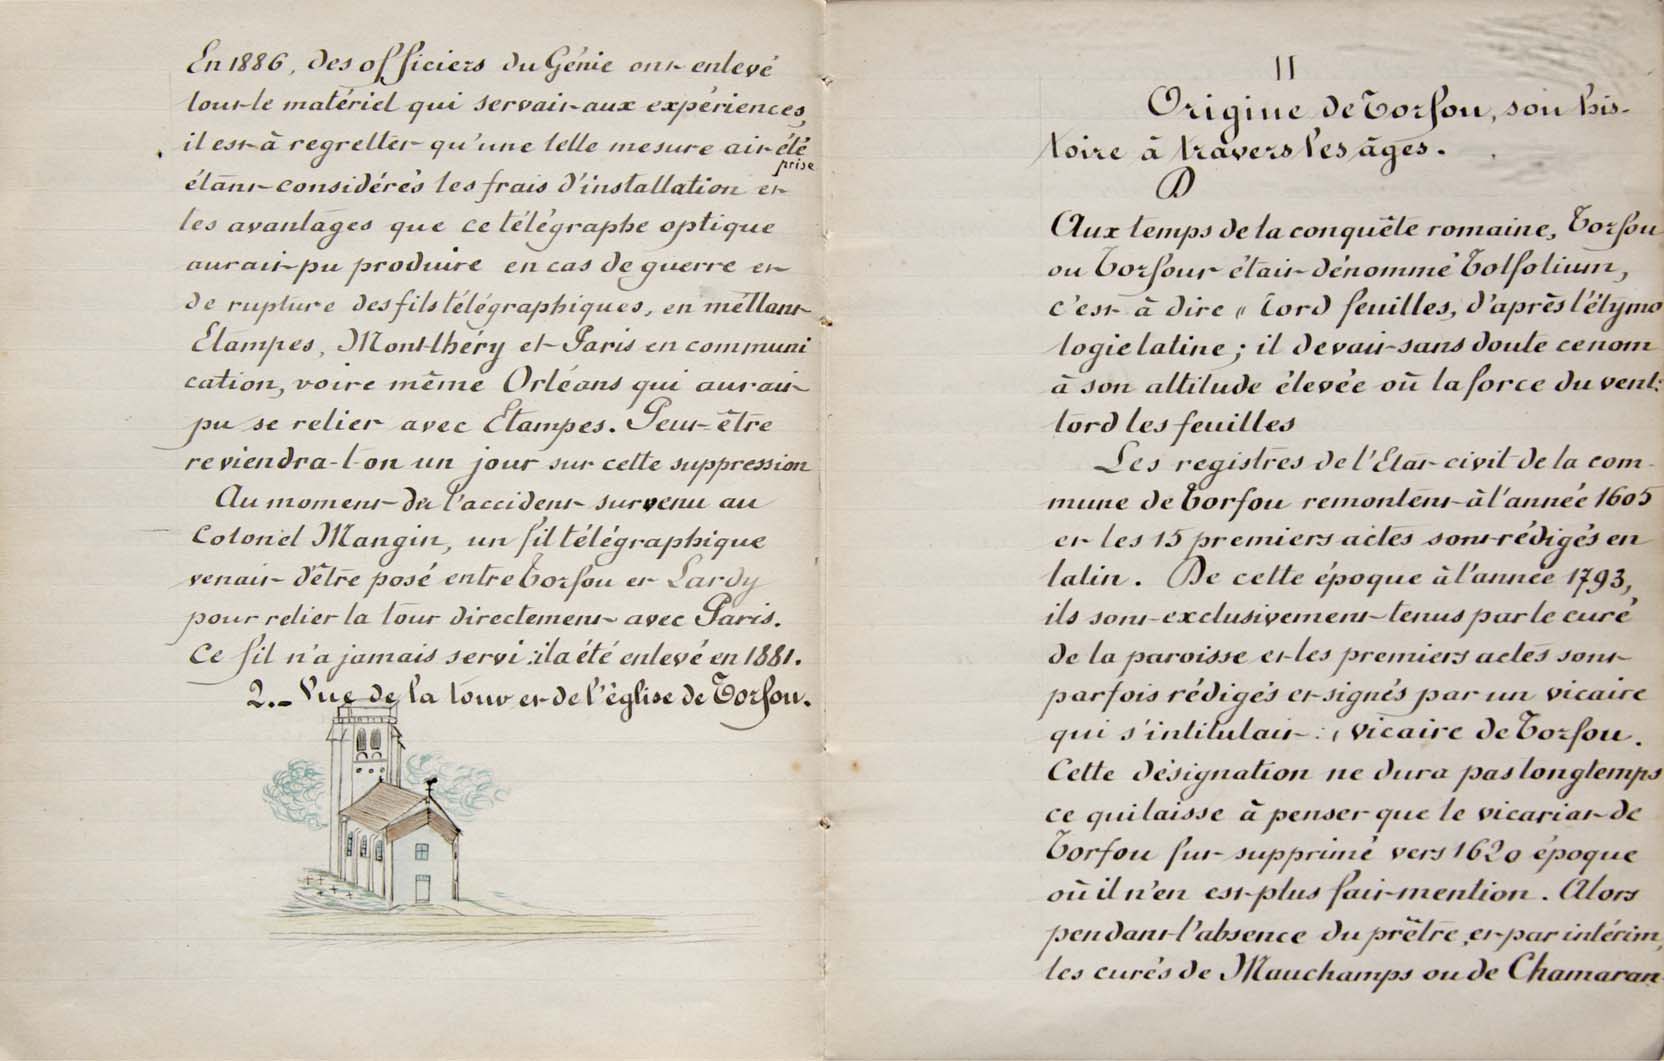 En 1886, des officiers du Génie ont enlevé
tout le matériel qui servait aux expériences,
il est à regretter qu'une telle mesure ait été
prise
étant considérés les frais d'installation et
les avantages que ce télégraphe optique
aurait pu produire en cas de guerre et
de rupture des fils télégraphiques, en mettant
Etampes, Montlhéry et Paris en communi
cation, voire même Orléans qui aurait
pu se relier avec Etampes. Peut-être
reviendra-t-on un jour sur cette suppression
Au moment de l'accident survenu au
Colonel Mangin, un fil télégraphique
venait d'être posé entre Torfou et Lardy
pour relier la tour directement avec Paris.
Ce fil n'a jamais servi : il a été enlevé en 1881.
2.- Vue de la tour et de l'église de Torfou.
II
Origine de Torfou, son his-
toire à travers les âges.
Aux temps de la conquête romaine, Torfou
ou Torfout était dénommé Tolfolium,
c'est à dire " tord feuilles, d'après l'étymo
logie latine ; il devait sans doute ce nom
à son altitude élevée où la force du vent
tord les feuilles
Les registres de l'Etat civil de la com-
mune de Torfou remontent à l'année 1605
et les 15 premiers actes sont rédigés en
latin. De cette époque à l'année 1793,
ils sont exclusivement tenus par le curé
de la paroisse et les premiers actes sont
parfois rédigés et signés par un vicaire
qui s'intitulait : vicaire de Torfou.
Cette désignation ne dura pas longtemps
ce qui laisse à penser que le vicariat de
Torfou fut supprimé vers 1620 époque
où il n'en est plus fait mention. Alors
pendant l'absence du prêtre et par intérim,
les curés de Mauchamps ou de Chamaran